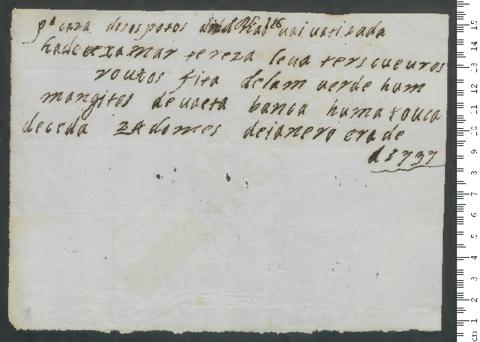 pª caza desos potos vai vatizada
hade exxamar tereza leua ters cueuros
routos fita delam verde hum
mangitos de vaeta banca huma touca
deceda 24 do mes dejanero era de
d 1737